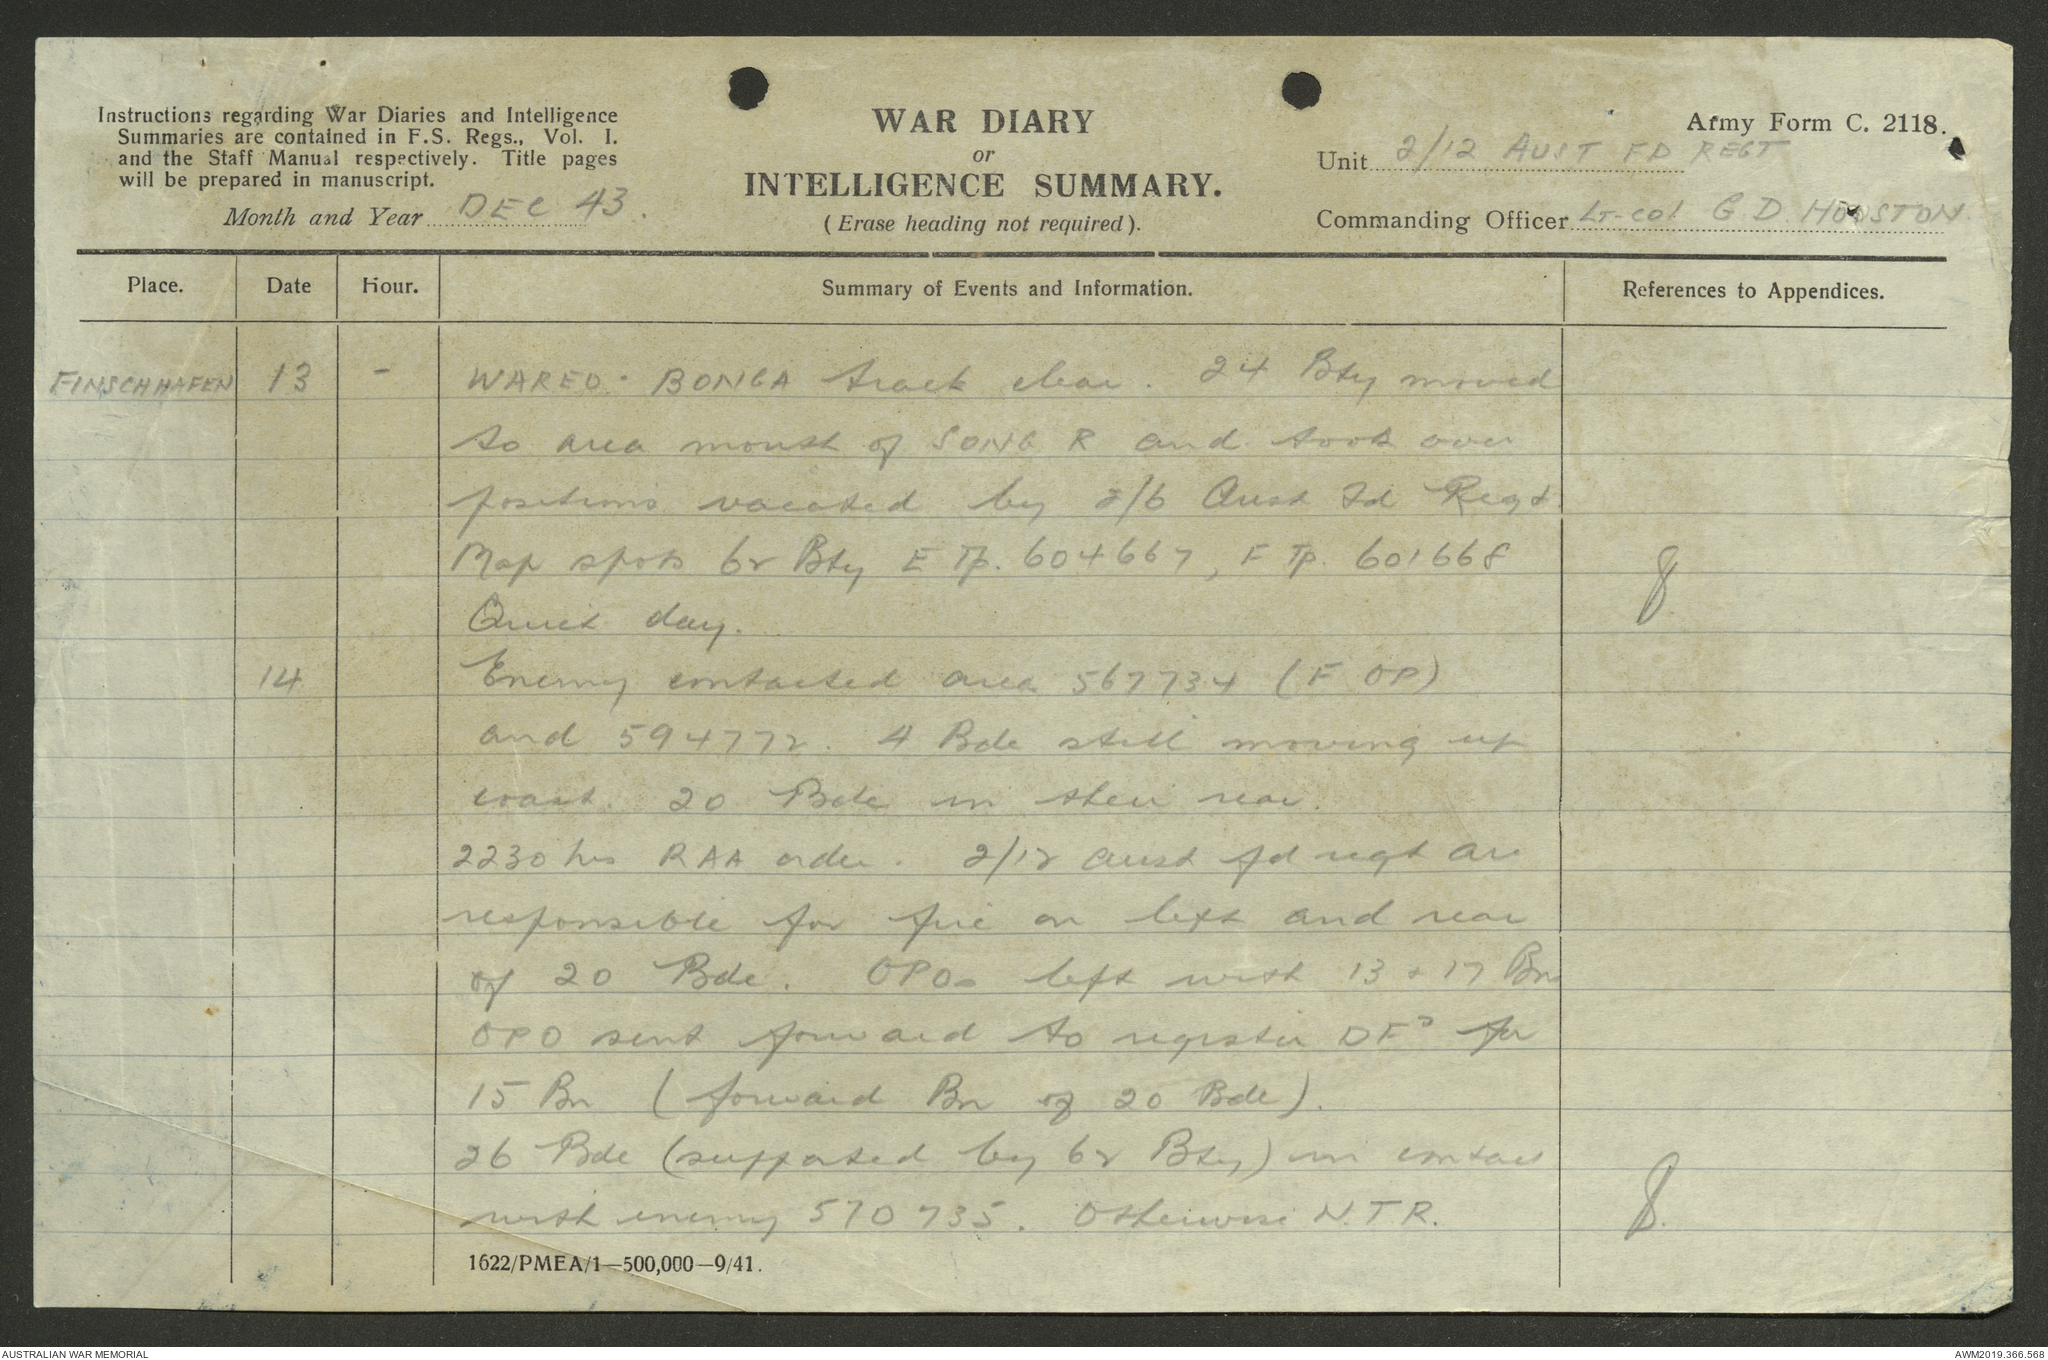 Instructions regarding War Diaries and Intelligence
Summaries are contained in F.S. Regs., Vol. I.
and the Staff Manual respectively. Title pages
will be prepared in manuscript.
Month and Year DEC 43.
WAR DIARY
or
INTELLIGENCE SUMMARY.
(Erase heading not required).
Army Form C. 2118.
Unit 2/12 AUST FD REGT
Commanding Officer Lt-Col G D. HOUSTON.
Place. Date Hour. Summary of Events and Information. References to Appendices.
FINSCHHAFEN 13 - WAREO - BONGA track clear. 24 Bty moved
to area mouth of SONG R and took over
positions vacated by 2/6 Aust Fd Regt
Map spots 62 Bty E Tp. 604667, F Tp. 601668
Quiet day.
14 Enemy contacted area 567734 (F OP)
and 594772. 4 Bde still moving up
coast. 20 Bde in their rear.
2230 hrs RAA order. 2/12 Aust fd regt are
responsible for fire on left and rear
of 20 Bde. OPOs left with 13 + 17 Bns
OPO sent forward to register DFs for
15 Bn (forward Bn of 20 Bde).
26 Bde (supported by 62 Bty) in contact
with enemy 570735. Otherwise N.T.R.
1622/PMEA/1—500,000—9/41.
AUSTRALIAN WAR MEMORIAL
AWM2019.366.568